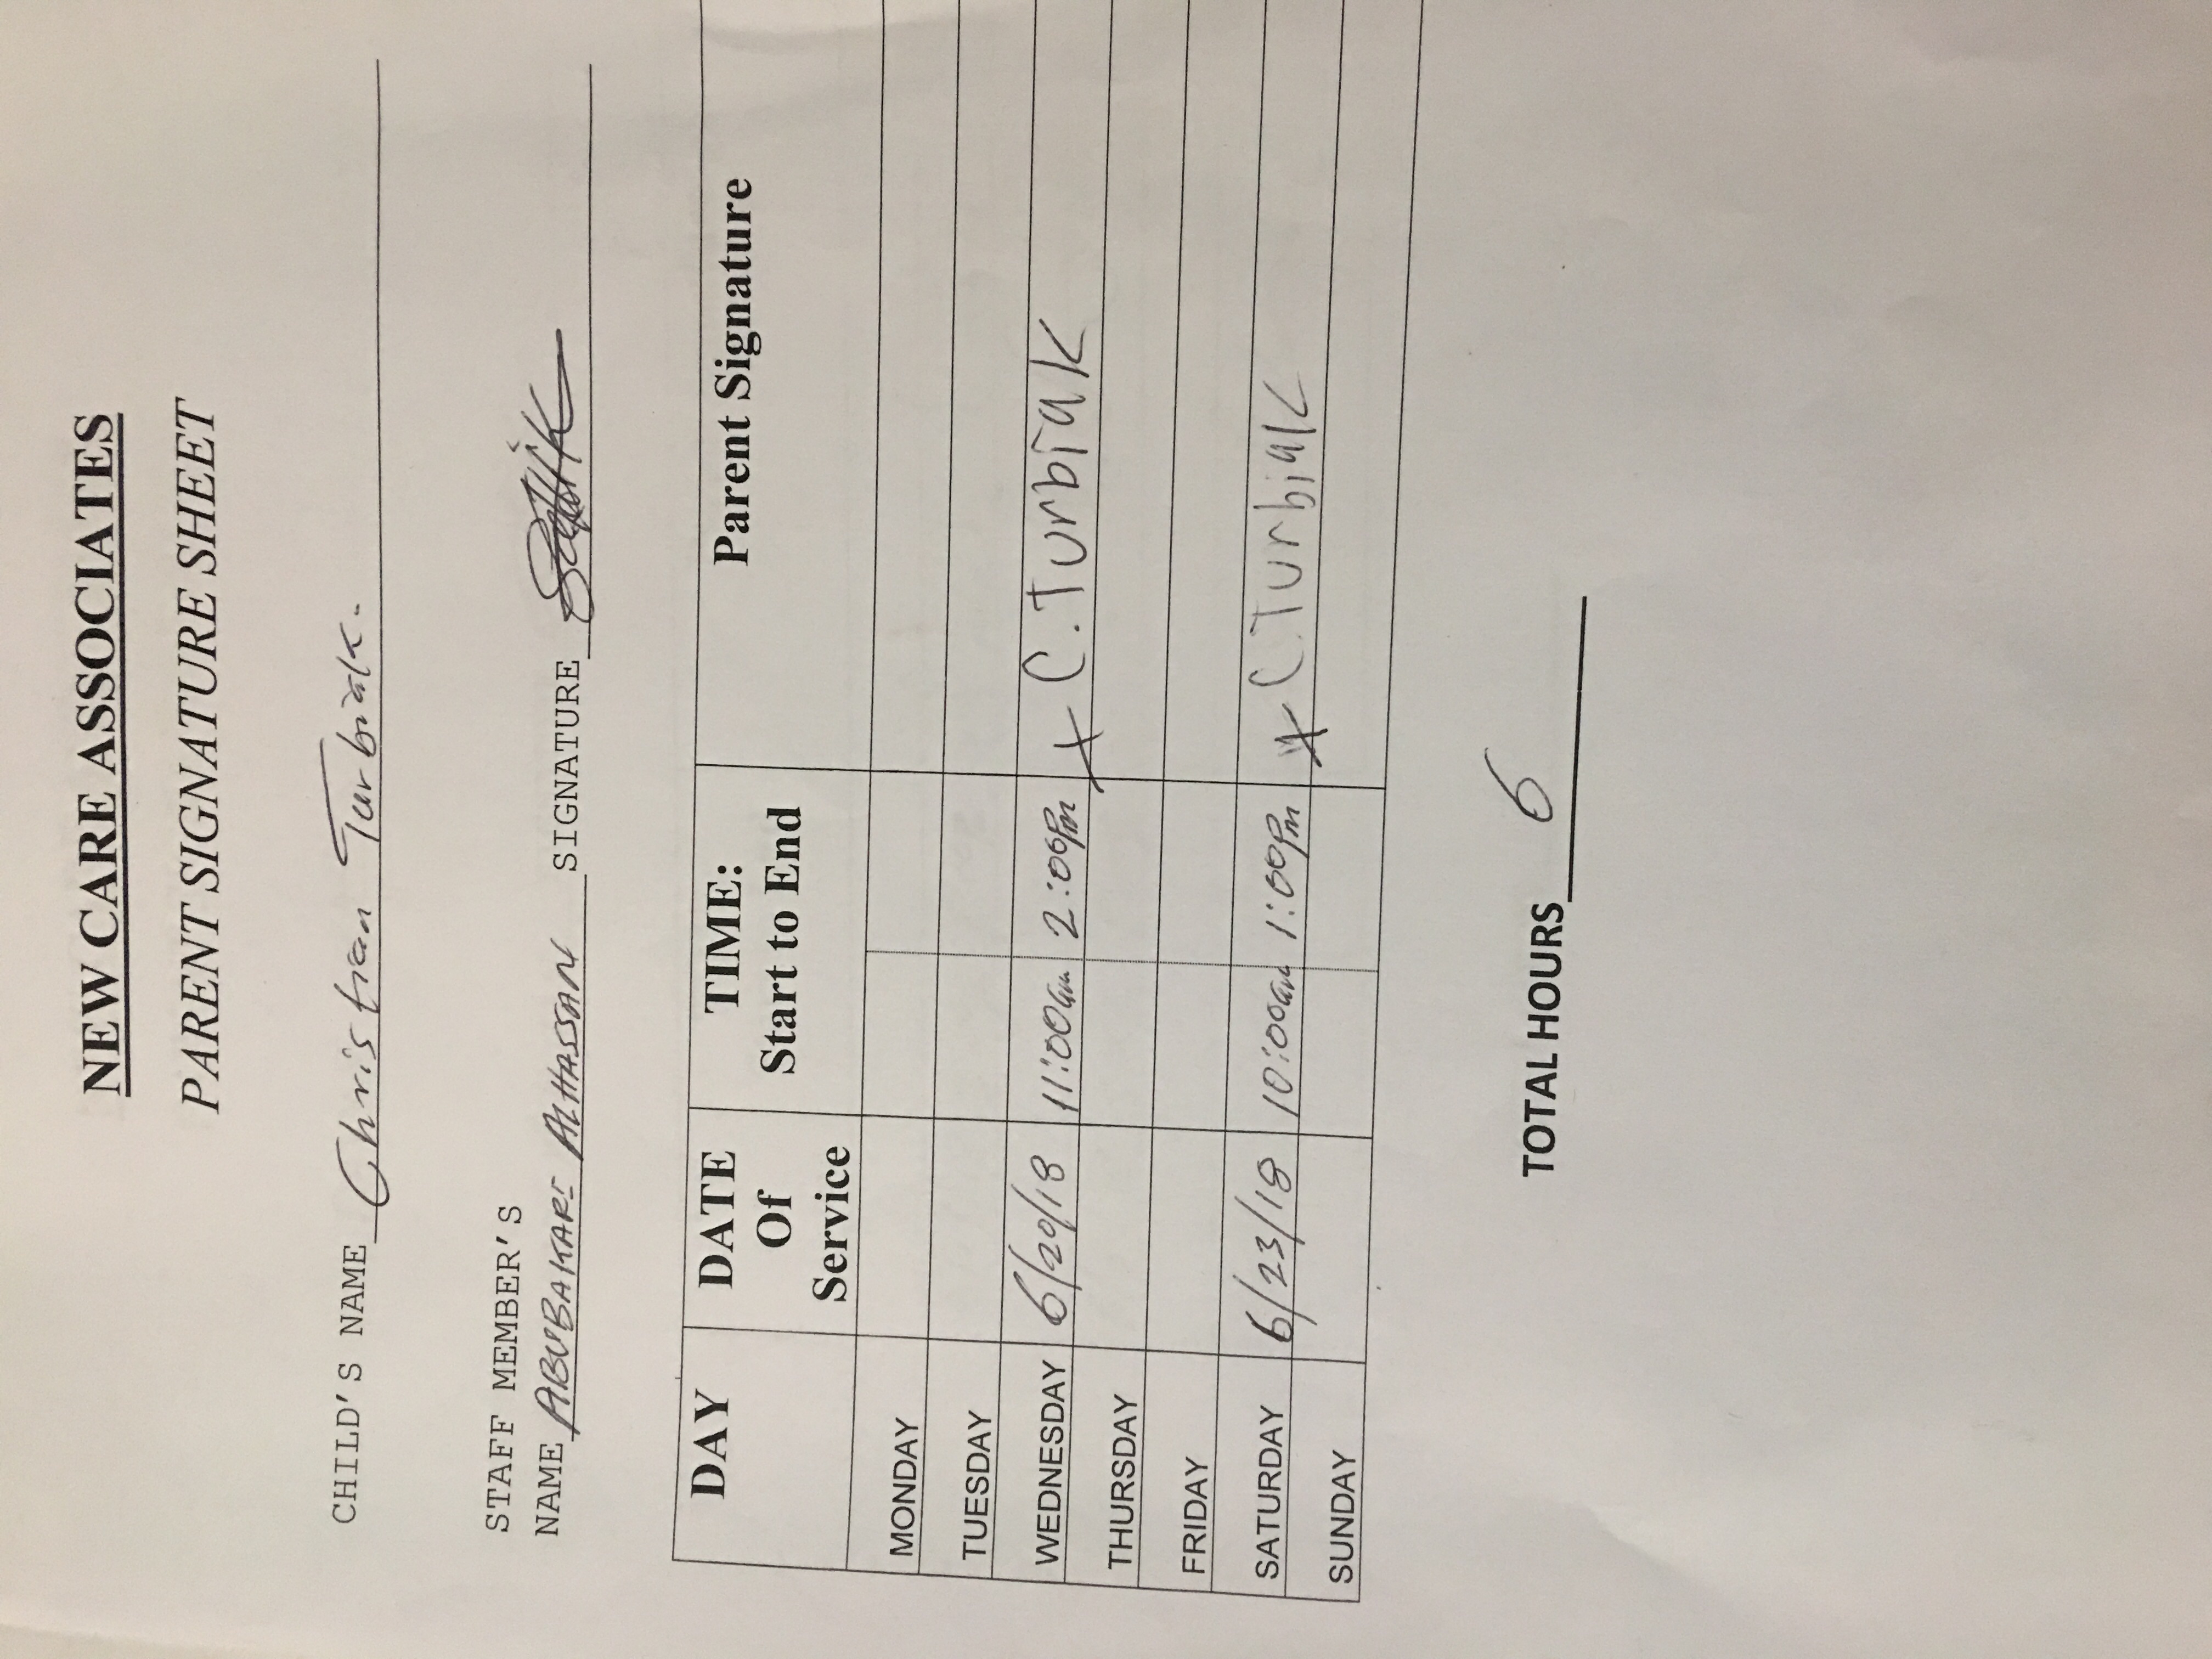 NEW CARE ASSOCIATES
PARENT SIGNATURE SHEET
CHILD'S NAME Christian Turbiak.
STAFF MEMBER'S
NAME ABUBAKARI ALHASSAN SIGNATURE
DAY DATE Of Service TIME: Start to End Parent Signature
MONDAY
TUESDAY
WEDNESDAY 6/20/18 11:00am 2:00pm x C. Turbiak
THURSDAY
FRIDAY
SATURDAY 6/23/18 10:00am 1:00pm x C. Turbiak
SUNDAY
TOTAL HOURS 6